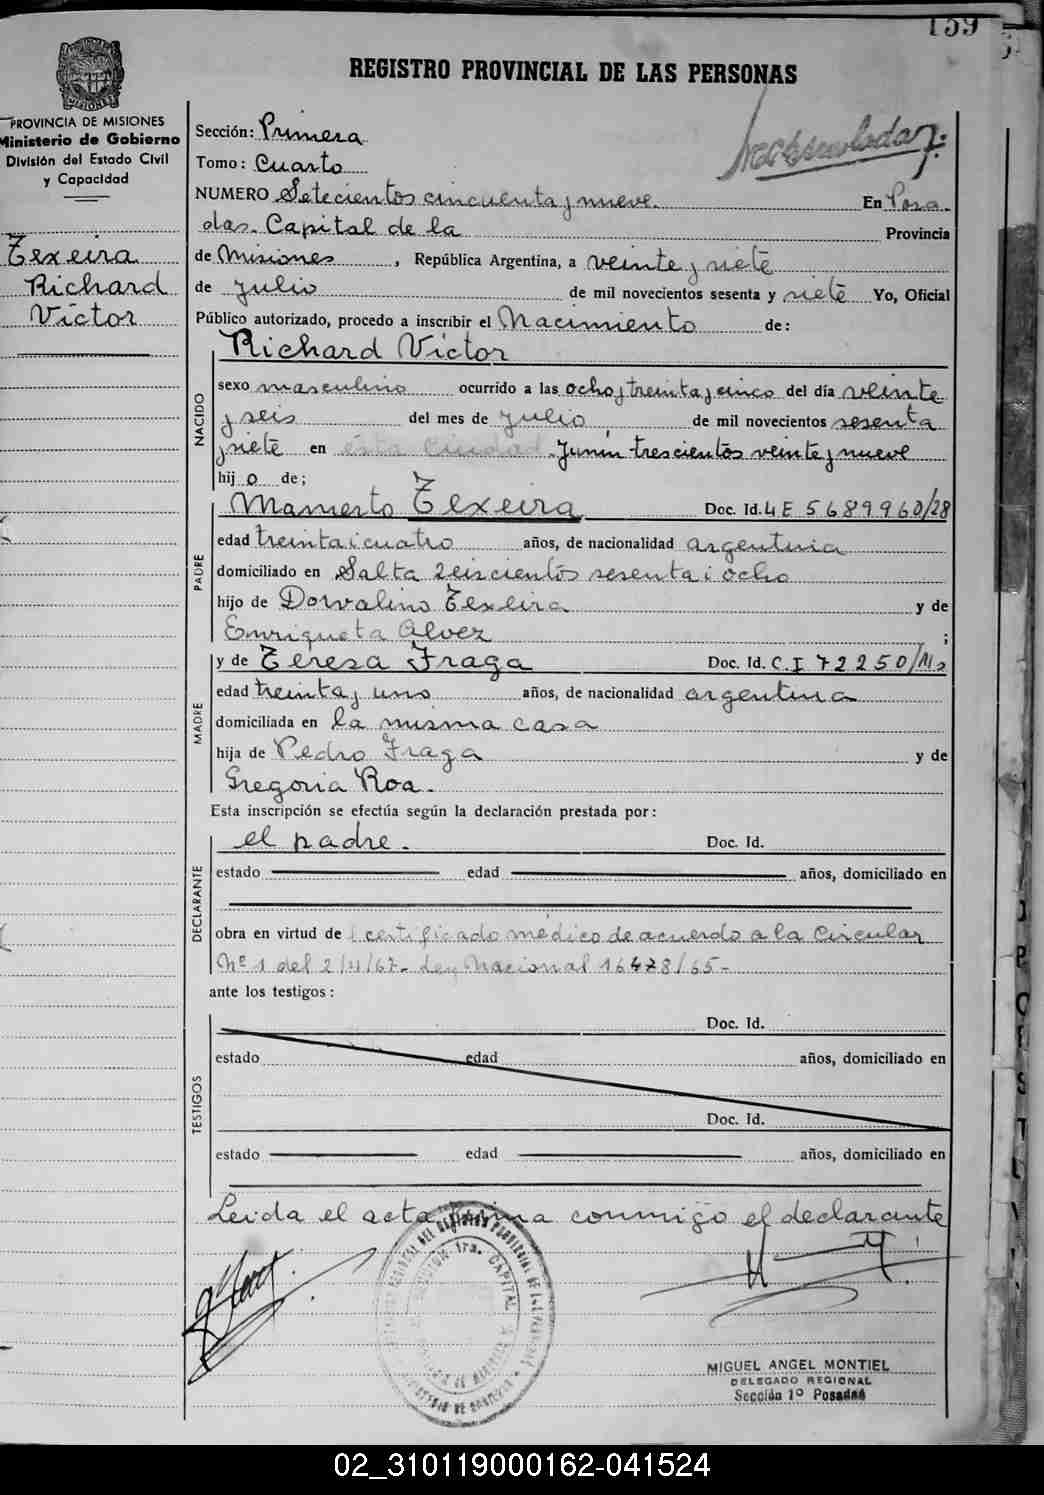 159
REGISTRO PROVINCIAL DE LAS PERSONAS
PROVINCIA DE MISIONES
Ministerio de Gobierno
División del Estado Civil
y Capacidad
Texeira
Richard
Víctor
Sección: Primera
Tomo: Cuarto
NUMERO Setecientos cincuenta y nueve En Posa
das. Capital de la Provincia
de Misiones, República Argentina, a veinte y siete
de Julio de mil novecientos sesenta y siete Yo, Oficial
Público autorizado, procedo a inscribir el Nacimiento de:
Richard Víctor
NACIDO
sexo masculino ocurrido a las ocho y treinta y cinco del día veinte
y seis del mes de Julio de mil novecientos sesenta
y siete en ésta Ciudad Junín trescientos veinte y nueve
hijo de;
PADRE
Mamerto Texeira Doc. Id. LE 5689960/28
edad treinta i cuatro años, de nacionalidad argentina
domiciliado en Salta seiscientos sesenta i ocho
hijo de Dorvalino Texeira y de
Enriqueta Alvez ;
MADRE
y de Teresa Fraga Doc. Id. C.I 72250/Ms
edad treinta y uno años, de nacionalidad argentina
domiciliada en la misma casa
hija de Pedro Fraga y de
Gregoria Roa.
Esta inscripción se efectúa según la declaración prestada por:
DECLARANTE
el padre. Doc. Id.
estado edad años, domiciliado en
obra en virtud de certificado médico de acuerdo a la Circular
Nº 1 del 2/4/67- Ley Nacional 16478/65-
ante los testigos:
TESTIGOS
Doc. Id.
estado edad años, domiciliado en
Doc. Id.
estado edad años, domiciliado en
Leida el acta firma conmigo el declarante
MIGUEL ANGEL MONTIEL
DELEGADO REGIONAL
Sección 1º Posadas
02_310119000162-041524